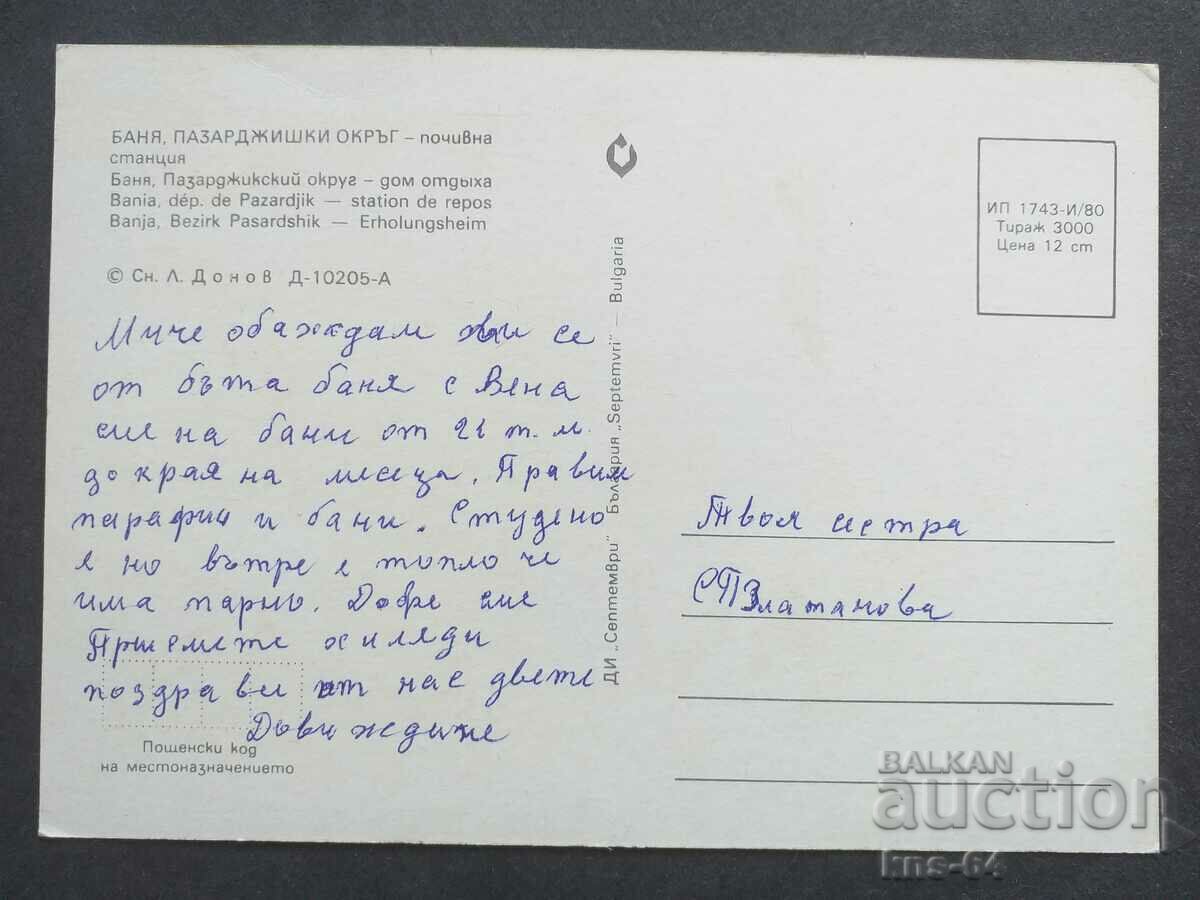 БАНЯ, ПАЗАРДЖИШКИ ОКРЪГ – почивна
станция
Баня, Пазарджикский округ – дом отдыха
Bania, dép. de Pazardjik — station de repos
Banja, Bezirk Pasardshik — Erholungsheim
© Сн. Л. Донов Д-10205-А
Миче обаждам ви се
от бъта баня с Вена
сме на бани от 21 т.м.
до края на месеца. Правим
парафин и бани. Студено
е но вътре е топло че
има парно. Добре сме
Приемете хиляди
поздрави от нас двете
Довиждане
Пощенски код
на местоназначението
ДИ „Септември" България „Septemvri" — Bulgaria
ИП 1743-И/80
Тираж 3000
Цена 12 ст
Твоя сестра
СПЗлатанова
BALKAN
auction
kns-64